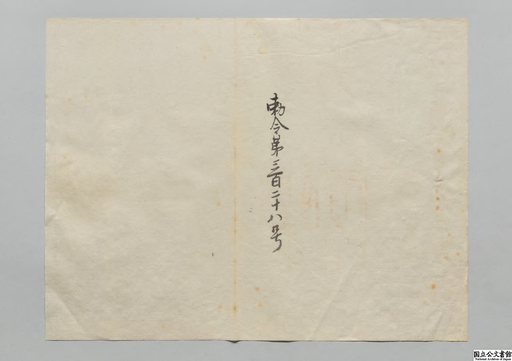 勅令第三百二十八号
国立公文書館
National Archives of Japan